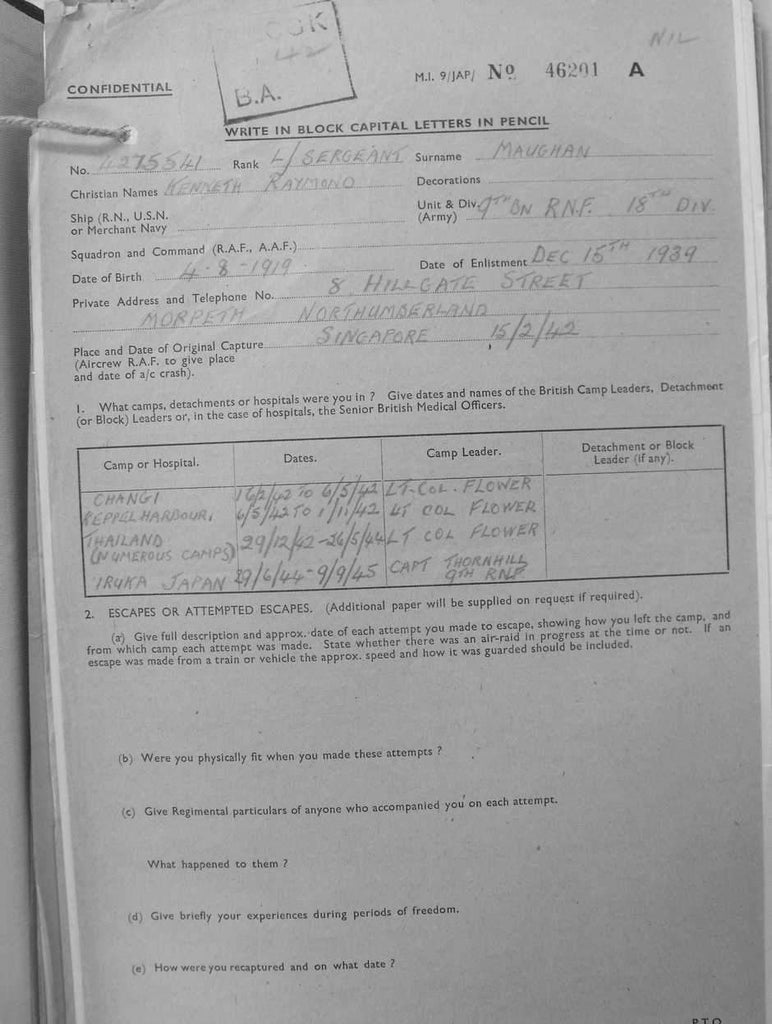 NIL
42
B.A.
CONFIDENTIAL
M.I. 9/JAP/ No 46201 A
WRITE IN BLOCK CAPITAL LETTERS IN PENCIL
No. 4275541 Rank L/SERGEANT Surname MAUGHAN
Christian Names KENNETH RAYMOND Decorations
Ship (R.N., U.S.N. or Merchant Navy
Unit & Div. (Army) 9TH BN R.N.F. 18TH DIV.
Squadron and Command (R.A.F., A.A.F.)
Date of Birth 4-8-1919 Date of Enlistment DEC 15TH 1939
Private Address and Telephone No. 8 HILLGATE STREET
MORPETH NORTHUMBERLAND
Place and Date of Original Capture SINGAPORE 15/2/42
(Aircrew R.A.F. to give place
and date of a/c crash).
1. What camps, detachments or hospitals were you in ? Give dates and names of the British Camp Leaders, Detachment
(or Block) Leaders or, in the case of hospitals, the Senior British Medical Officers.
Camp or Hospital. Dates. Camp Leader. Detachment or Block Leader (if any).
CHANGI 16/2/42 TO 6/5/42 LT-COL. FLOWER
KEPPEL HARBOUR, 6/5/42 TO 1/11/42 LT COL FLOWER
THAILAND (NUMEROUS CAMPS) 29/12/42-26/5/44 LT COL FLOWER
IRUKA JAPAN 29/6/44-9/9/45 CAPT THORNHILL 9TH RNF
2. ESCAPES OR ATTEMPTED ESCAPES. (Additional paper will be supplied on request if required).
(a) Give full description and approx. date of each attempt you made to escape, showing how you left the camp, and
from which camp each attempt was made. State whether there was an air-raid in progress at the time or not. If an
escape was made from a train or vehicle the approx. speed and how it was guarded should be included.
(b) Were you physically fit when you made these attempts ?
(c) Give Regimental particulars of anyone who accompanied you on each attempt.
What happened to them ?
(d) Give briefly your experiences during periods of freedom.
(e) How were you recaptured and on what date ?
P.T.O.